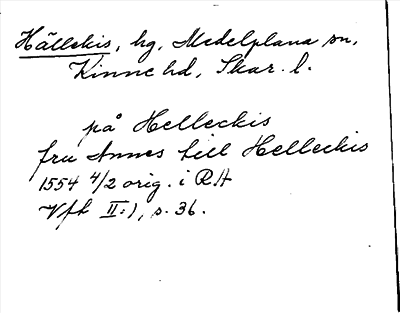 Hällekis, hg, Medelplana sn,
Kinne hd, Skar. l.
på Helleckis
fru Annes till Helleckis
1554 4/2 orig. i RA
Vft II:1, s. 36.